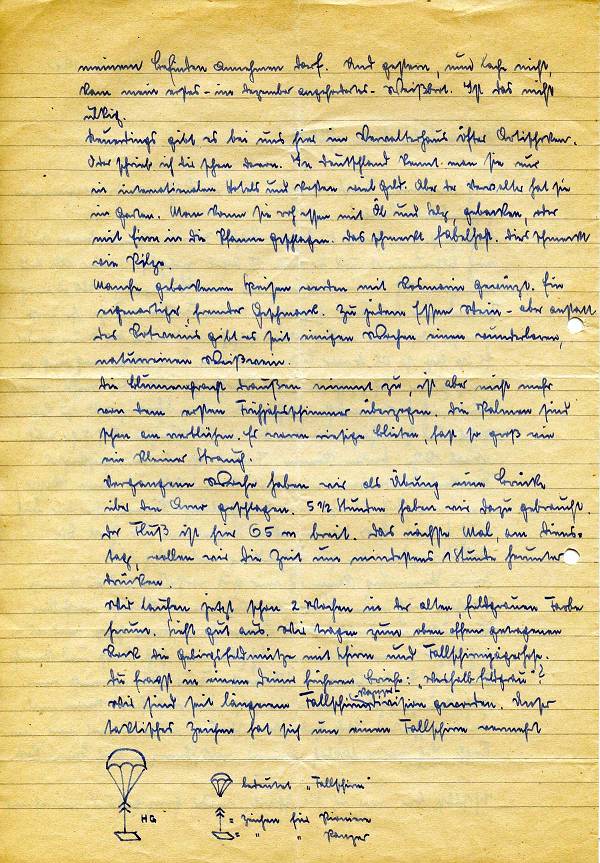 meinem Befinden annehmen darf. Und gestern, nun lache nicht,
kam mein erstes - im Dezember angefordertes - Weißbrot. Ist das nicht
ulkig.
Neuerdings gibt es bei uns hier im Verwalterhaus öfter Artischoken.
Oder schrieb ich dir schon davon. In Deutschland kennt man sie nur
in internationalen Hotels und kosten viel Geld. Aber der Verwalter hat sie
im Garten. Man kann sie roh essen mit Öl und Salz, gebacken, oder
mit Eiern in die Pfanne geschlagen. Das schmeckt fabelhaft. Dies schmeckt
wie Pilze.
Manche gebackenen Speisen werden mit Rosmarin gewürzt. Ein
eigenartiger, fremder Geschmack. Zu jedem Essen Wein - aber anstatt
des Rotweins gibt es seit einigen Wochen einen wunderbaren,
naturreinen Weißwein.
Die Blumenpracht draußen nimmt zu, ist aber nicht mehr
von dem ersten Frühjahrsschimmer überzogen. Die Palmen sind
schon am verblühen. Es waren riesige Blüten, fast so groß wie
ein kleiner Strauch.
Vergangene Woche haben wir als Übung eine Brücke
über den Arno geschlagen. 5 1/2 Stunden haben wir dazu gebraucht.
Der Fluß ist hier 65 m breit. Das nächste Mal, am Diens-
tag, wollen wir die Zeit um mindestens 1 Stunde herunter
drücken.
Wir laufen jetzt schon 2 Wochen in der alten, feldgrauen Farbe
herum. Sieht gut aus. Wir tragen zum oben offen getragenen
Rock die Gebirgsfeldmütze mit Schirm und Fallschirmjägerhose.
Du fragst in einem Deiner früheren Briefe: "Weshalb feldgrau"?
Wir sind seit längerem Fallschirmpanzerdivision geworden. Unser
taktisches Zeichen hat sich um einen Fallschirm vermehrt
HG
bedeutet "Fallschirm"
= Zeichen für Pioniere
= " " Panzer